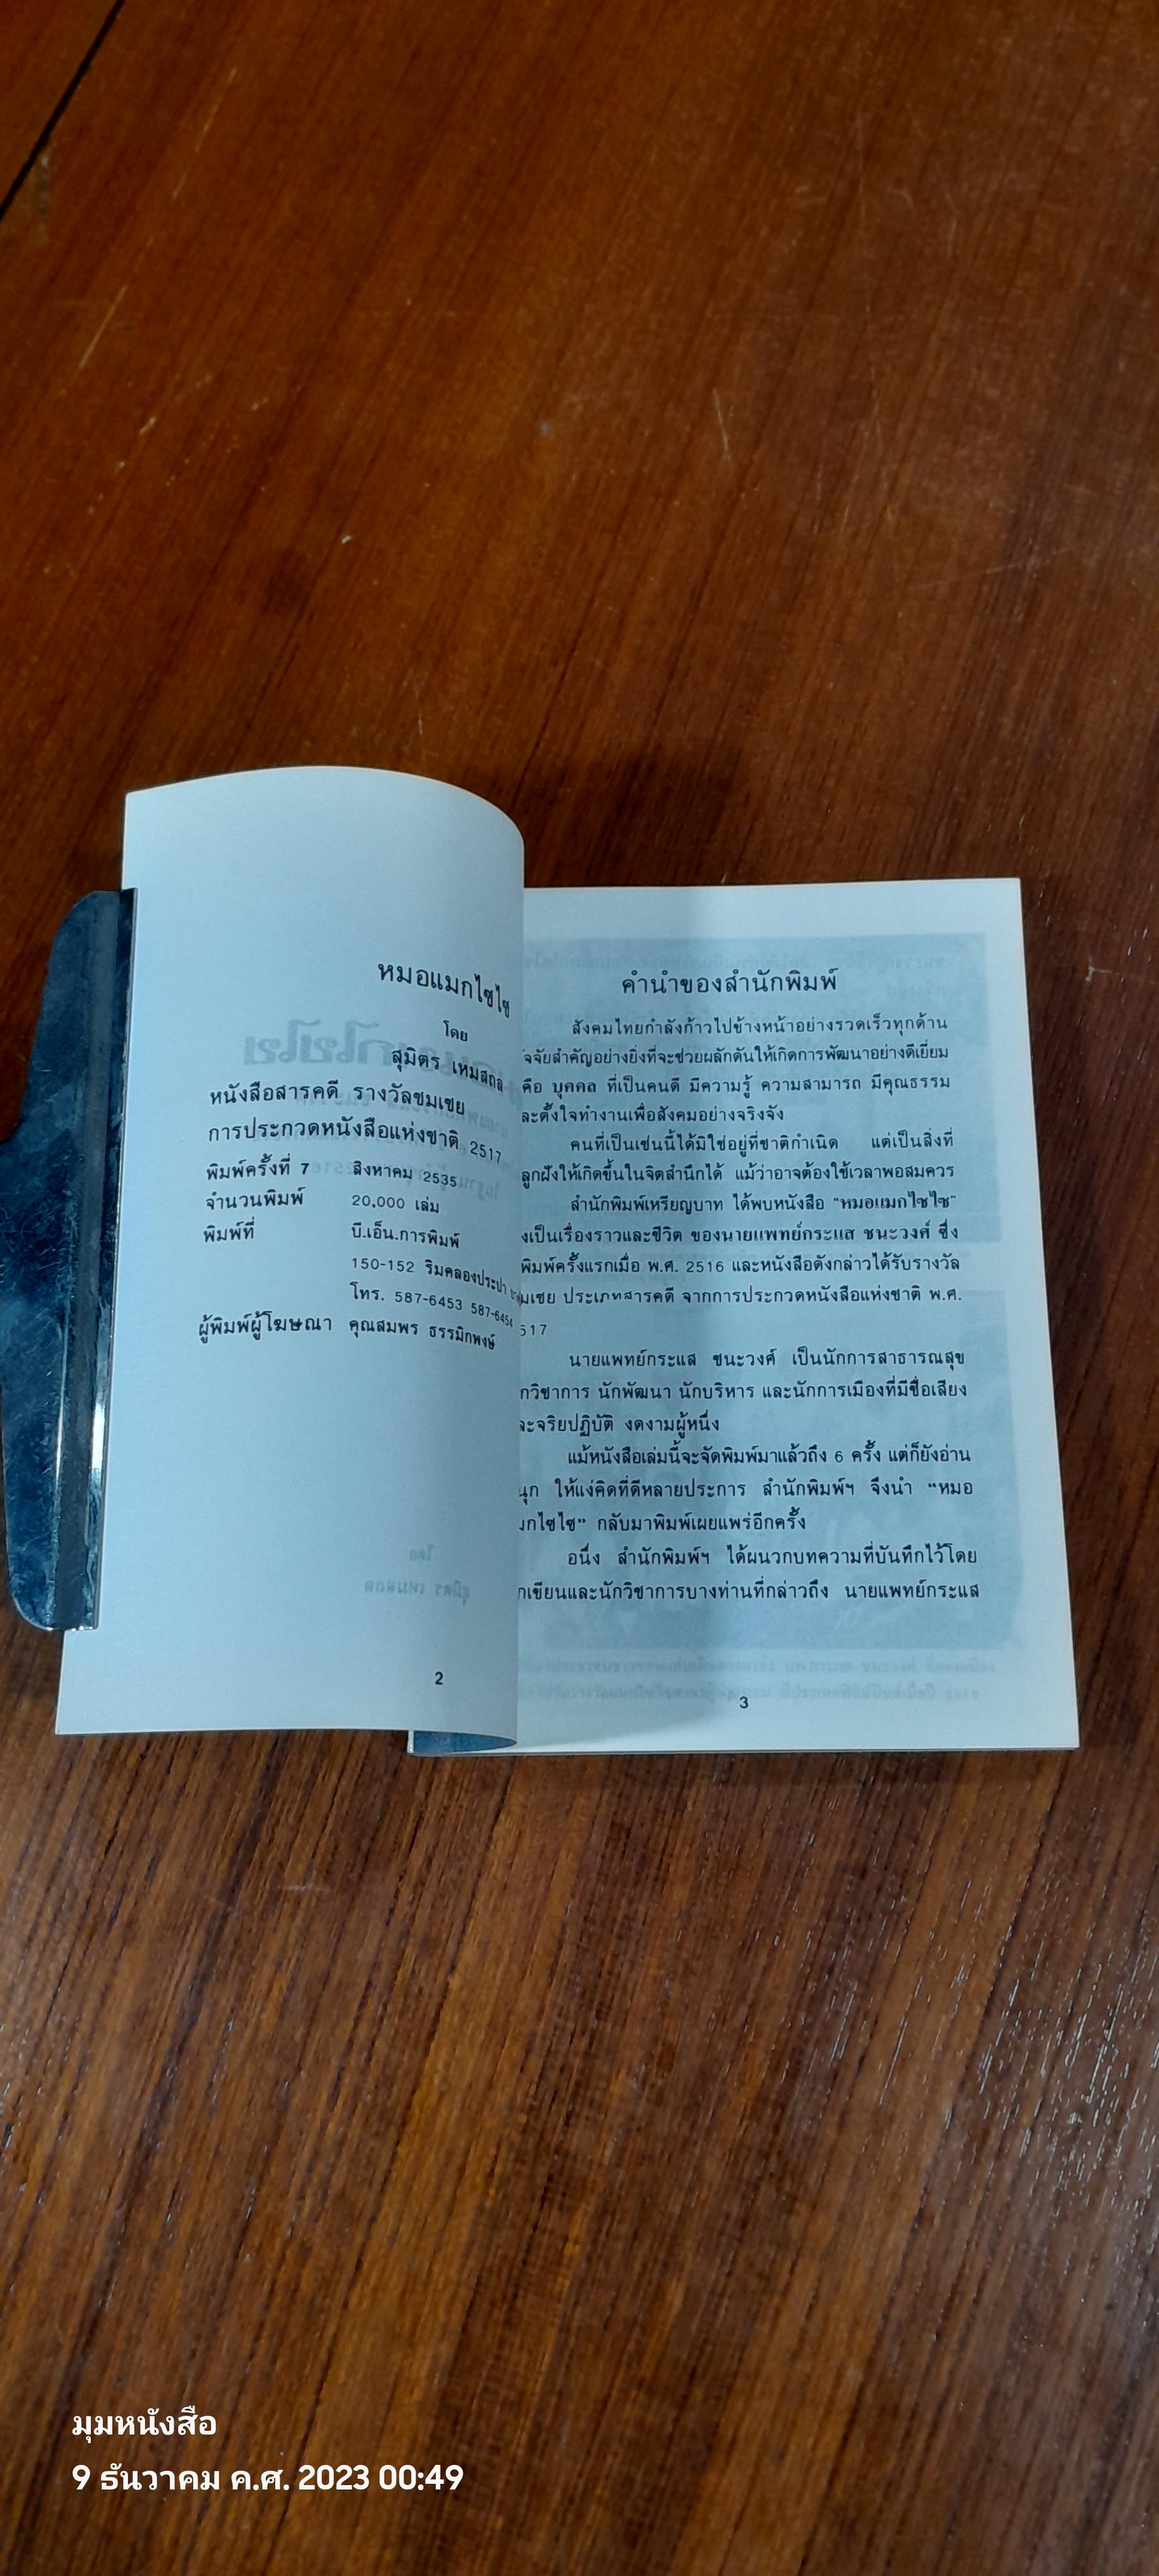 หมอแมกไซไซ
โดย
สุมิตร เหมสถล
หนังสือสารคดี รางวัลชมเชย
การประกวดหนังสือแห่งชาติ 2517
พิมพ์ครั้งที่ 7 สิงหาคม 2535
จำนวนพิมพ์ 20,000 เล่ม
พิมพ์ที่ บี.เอ็น.การพิมพ์
150-152 ริมคลองประปา
โทร. 587-6453 587-6454
ผู้พิมพ์ผู้โฆษณา คุณสมพร ธรรมิกพงษ์
2
คำนำของสำนักพิมพ์
สังคมไทยกำลังก้าวไปข้างหน้าอย่างรวดเร็วทุกด้าน
จจัยสำคัญอย่างยิ่งที่จะช่วยผลักดันให้เกิดการพัฒนาอย่างดีเยี่ยม
คือ บุคคล ที่เป็นคนดี มีความรู้ ความสามารถ มีคุณธรรม
ละตั้งใจทำงานเพื่อสังคมอย่างจริงจัง
คนที่เป็นเช่นนี้ได้มิใช่อยู่ที่ชาติกำเนิด แต่เป็นสิ่งที่
ลูกฝังให้เกิดขึ้นในจิตสำนึกได้ แม้ว่าอาจต้องใช้เวลาพอสมควร
สำนักพิมพ์เหรียญบาท ได้พบหนังสือ "หมอแมกไซไซ"
งเป็นเรื่องราวและชีวิต ของนายแพทย์กระแส ชนะวงศ์ ซึ่ง
พิมพ์ครั้งแรกเมื่อ พ.ศ. 2516 และหนังสือดังกล่าวได้รับรางวัล
มเชย ประเภทสารคดี จากการประกวดหนังสือแห่งชาติ พ.ศ.
517
นายแพทย์กระแส ชนะวงศ์ เป็นนักการสาธารณสุข
กวิชาการ นักพัฒนา นักบริหาร และนักการเมืองที่มีชื่อเสียง
ละจริยปฏิบัติ งดงามผู้หนึ่ง
แม้หนังสือเล่มนี้จะจัดพิมพ์มาแล้วถึง 6 ครั้ง แต่ก็ยังอ่าน
นุก ให้แง่คิดที่ดีหลายประการ สำนักพิมพ์ฯ จึงนำ "หมอ
มกไซไซ" กลับมาพิมพ์เผยแพร่อีกครั้ง
อนึ่ง สำนักพิมพ์ฯ ได้ผนวกบทความที่บันทึกไว้โดย
กเขียนและนักวิชาการบางท่านที่กล่าวถึง นายแพทย์กระแส
3
มุมหนังสือ
9 ธันวาคม ค.ศ. 2023 00:49